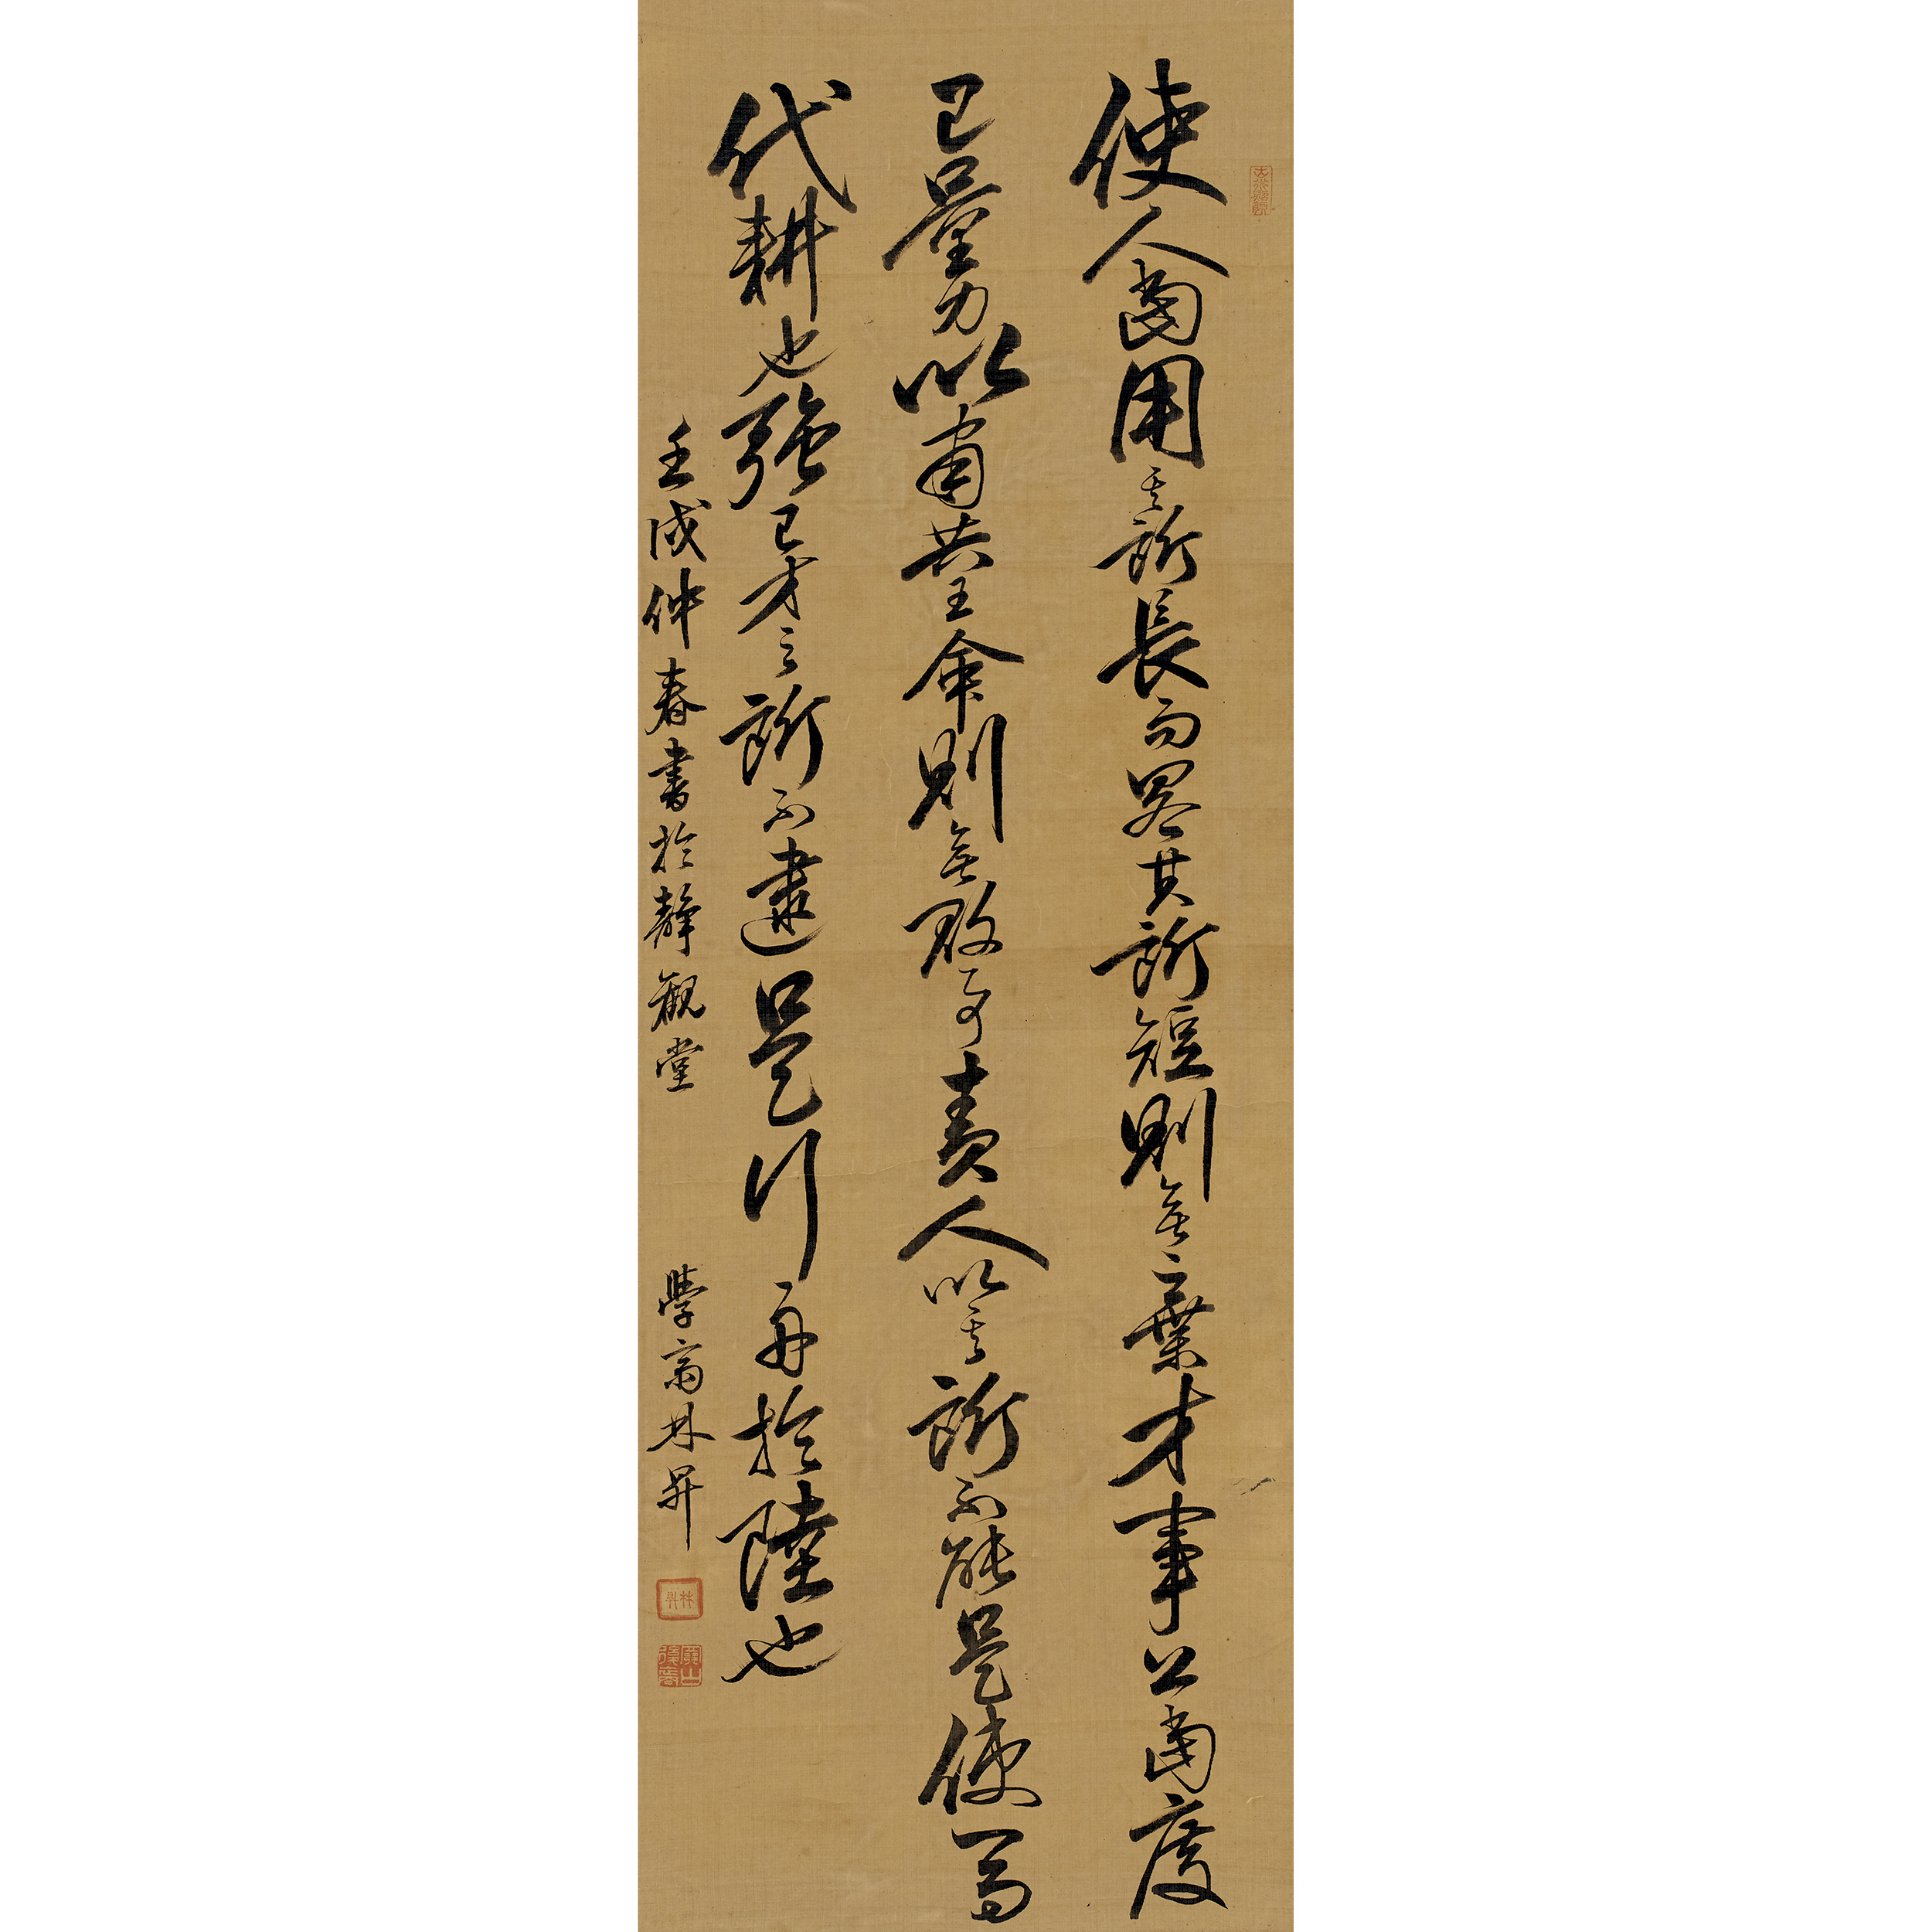 使人當用其所長而略其所短則無棄才事公當度
己量力以肅共王命則無敗事責人以其所不能是使馬
代耕也強己才之所不逮是行舟於陸也
壬戌仲春書於靜觀堂
學齋林昇
林昇